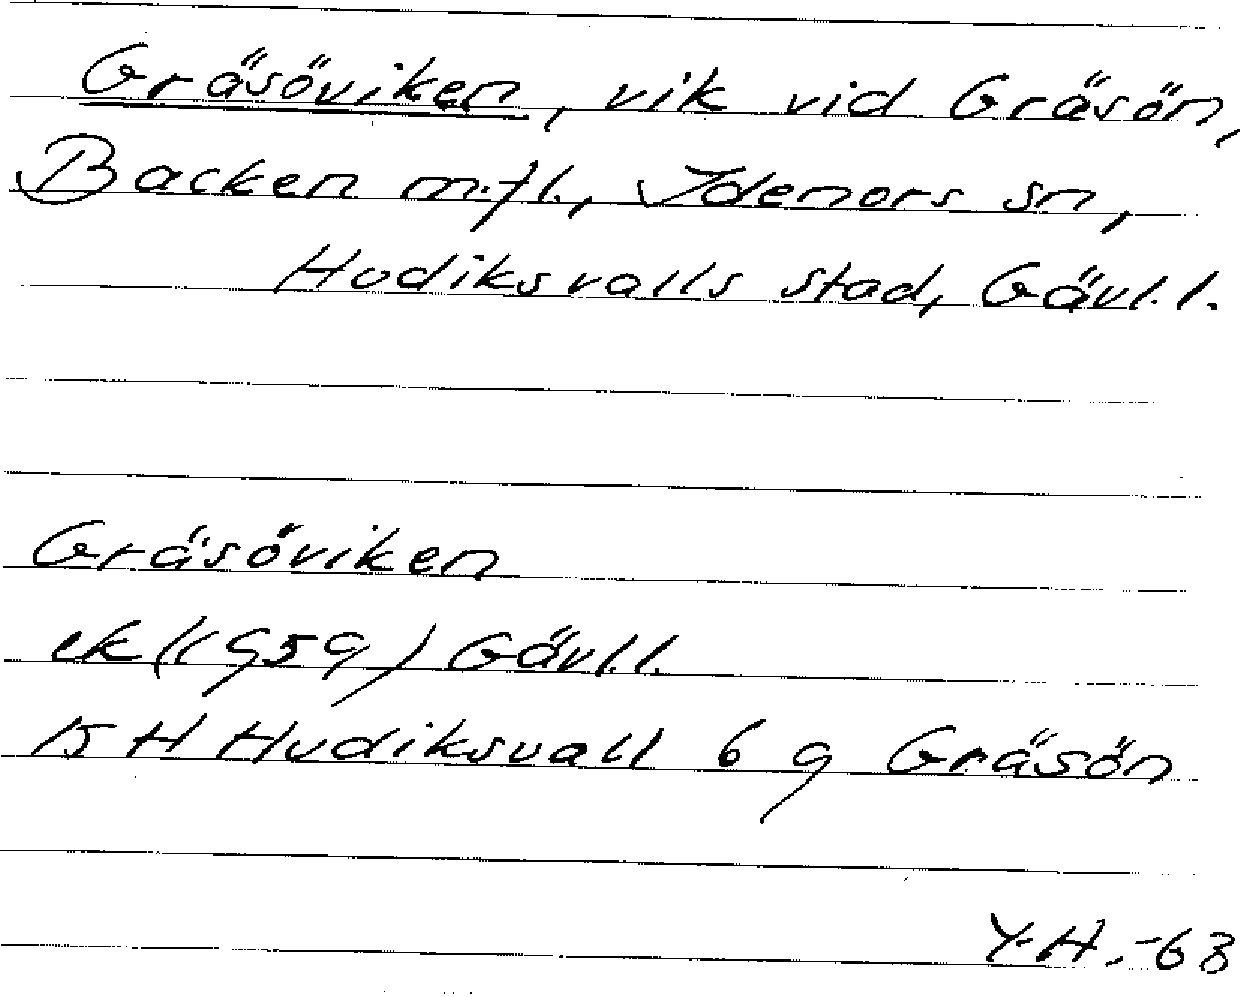 Gräsöviken, vik vid Gräsön,
Backen m.fl., Idenors sn,
Hudiksvalls stad, Gävl.l.
Gräsöviken
ek (1959) Gävl.l.
15 H Hudiksvall 6 g Gräsön
Y.H. -63